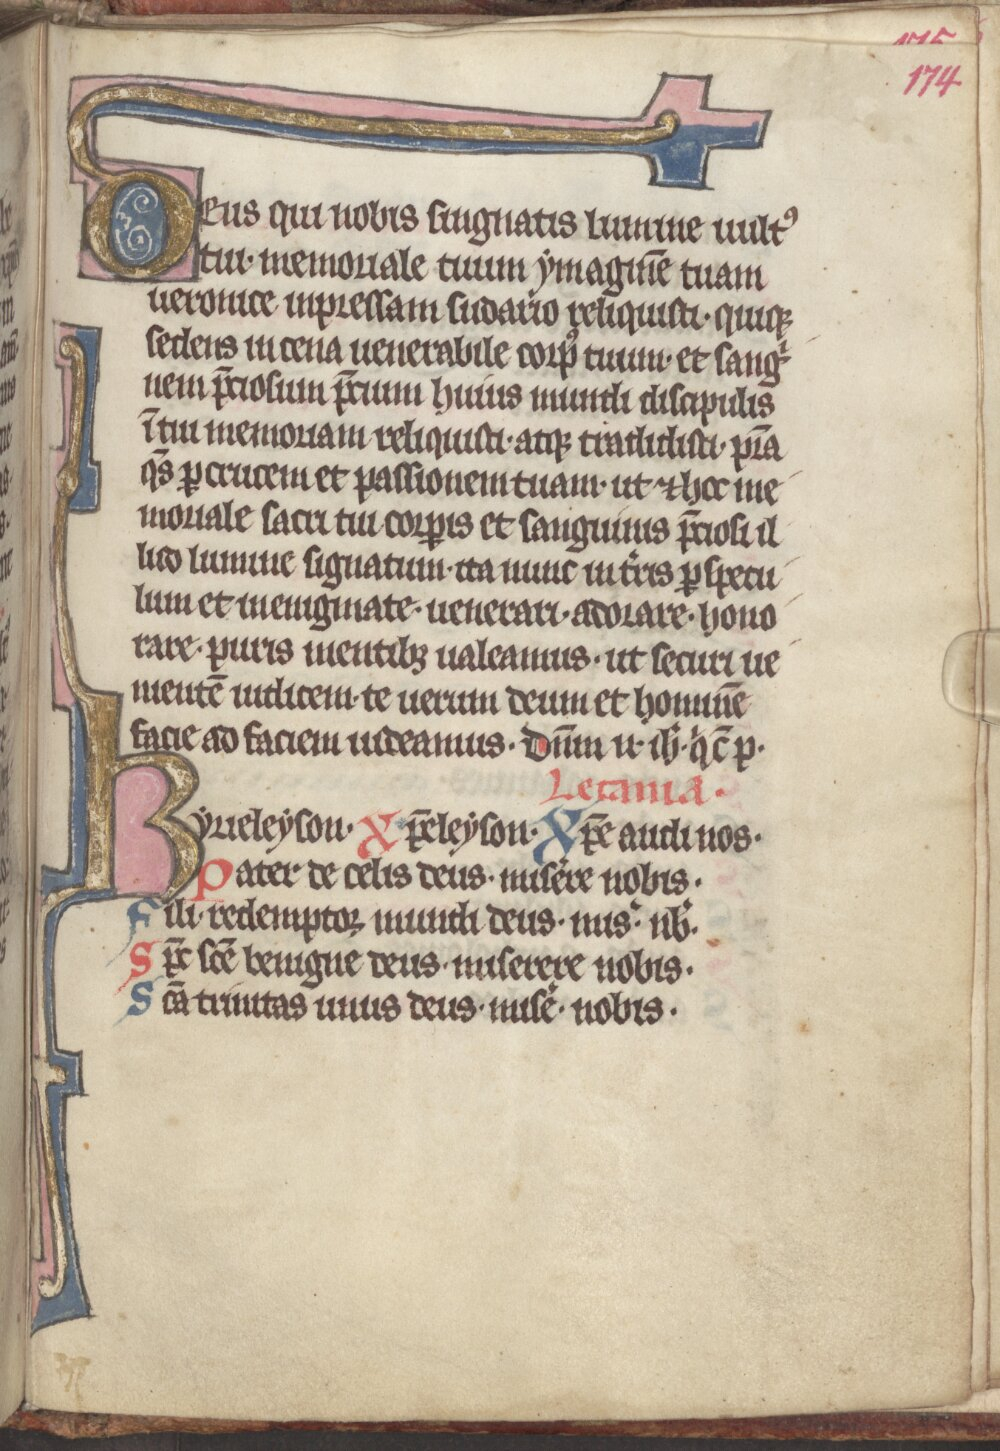 175
174
Deus qui nobis singnatis lumine uult⁹
tui· memoriale tuum ẏmagine̅ tuam
ueronice inpressam sudario reliquisti· quiqꝫ
sedens in cena uenerabile corp⁹ tuum· et sangⁱ
nem p̅ciosum p̅cium huius mundi discipulis
ī tui memoriam reliquisti· atqꝫ tradidisti· p̅ta
q̅s ꝑ crucem et passionem tuam· ut ⁊ hoc me
moriale sacri tui corꝑis et sanguinis p̅ciosi il
lud lumine signatum· ita nunc in t͛ris ꝑ specu
lum et in enigmate· uenerari· adorare· hono
rare· puris mentibꝫ ualeamus· ut securi ue
niente̅ iudicem· te uerum deum et homine̅
facie ad faciem uideamus· Dn̅m n͛· ih̅· q̇ c̅ p·
Letania·
Kẏrieleẏson· X xp̅eleẏson· X xp̅e audi nos·
Pater de celis deus· mise͛re nobis·
Fili· redemptoꝝ mundi deus· mis͛· nb̅·
S pc̅ sce̅ benigne deus· miserere nobis·
S ca̅ trinitas unus deus· mise͛· nobis·